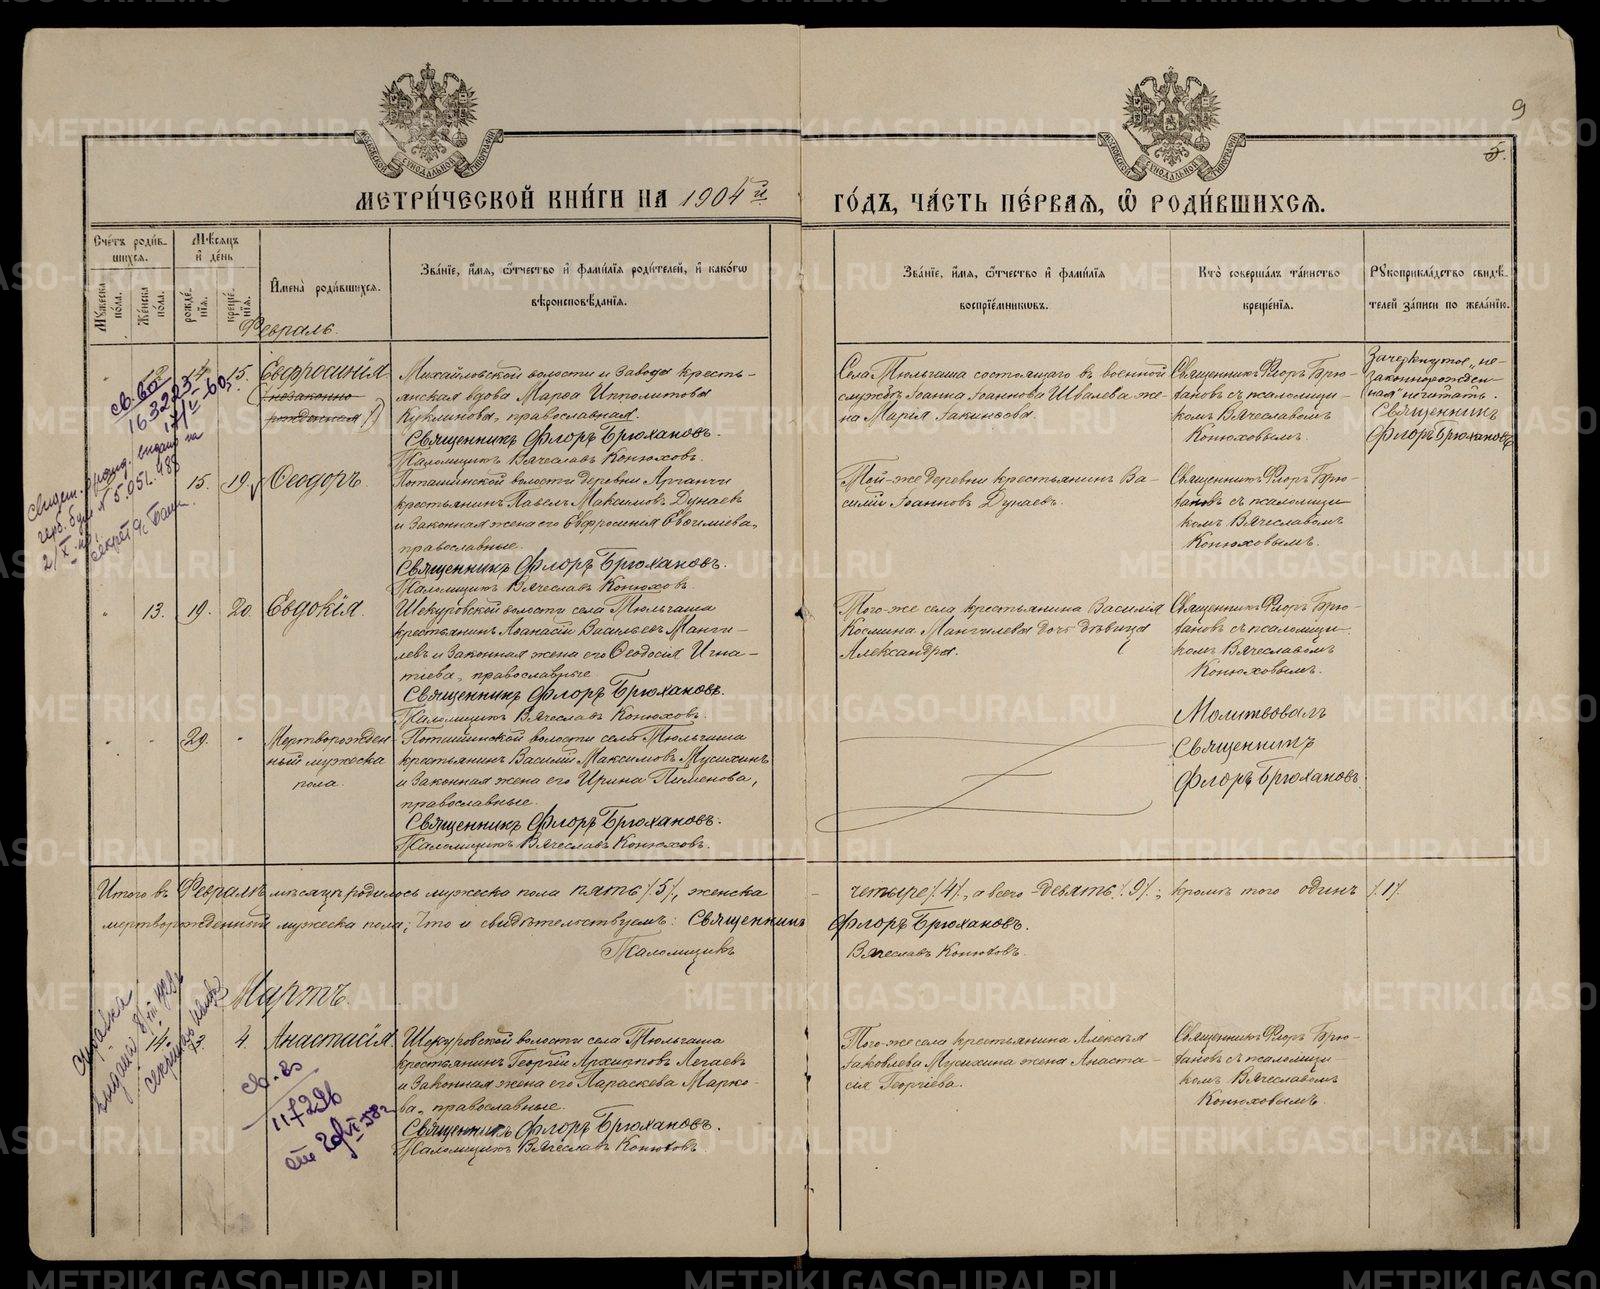 9
5.
МЕТРИ́ЧЕСКОЙ КНИ́ГИ НА 1904й
ГО́ДЪ, ЧА́СТЬ ПЕ́РВАѦ, Ѽ РОДИ́ВШИХСѦ.
Сче́тъ роди́в-
шихсѧ.
Мꙋ́жеска по́ла.
Же́нска по́ла.
Мѣ́сѧцъ
и҆ де́нь
рожде́-
нїѧ.
креще́-
нїѧ.
И҆мена̀ роди́вшихсѧ.
Зва́нїе, и҆́мѧ, ѻ҆́тчество и҆ фами́лїѧ роди́телей, и҆ како́гѡ
вѣроисповѣ́данїѧ.
Зва́нїе, и҆́мѧ, ѻ҆́тчество и҆ фами́лїѧ
воспрїе́мниковъ.
Кто̀ соверша́лъ та́инство
креще́нїѧ.
Рꙋкоприкла́дство свидѣ́-
телей за́писи по жела́нїю.
Февраль.
15.
Евфросинія
(незаконно-
рожденная)
Михайловской волости и завода кресть-
янская вдова Марѳа Ипполитова
Куклинова, православная.
Священникъ Флоръ Брюхановъ.
Псаломщикъ Вячеславъ Конюховъ.
Села Тюльгаша состоящаго въ военной
службѣ Іоанна Іоаннова Швалева же-
на Марія Іакинѳова.
Священникъ Флоръ Брю-
хановъ съ псаломщи-
комъ Вячеславомъ
Конюховымъ.
Зачеркнутое „не-
законнорожден-
ная" не читать.
Священникъ
Флоръ Брюхановъ
15. 19. Ѳеодоръ.
Поташинской волости деревни Арганчи
крестьянинъ Павелъ Максимовъ Дунаевъ
и законная жена его Евфросинія Евѳиміева,
православные.
Священникъ Флоръ Брюхановъ.
Псаломщикъ Вячеславъ Конюховъ.
Той-же деревни крестьянинъ Ва-
силій Іоанновъ Дунаевъ.
Священникъ Флоръ Брю-
хановъ съ псаломщи-
комъ Вячеславомъ
Конюховымъ.
" 13. 19. 20. Евдокія.
Шокуровской волости села Тюльгаша
крестьянинъ Аѳанасій Васильевъ Манги-
левъ и законная жена его Ѳеодосія Игна-
тіева, православные
Священникъ Флоръ Брюхановъ.
Псаломщикъ Вячеславъ Конюховъ.
Того-же села крестьянина Василія
Космина Мангилева дочь дѣвица
Александра.
Священникъ Флоръ Брю-
хановъ съ псаломщи-
комъ Вячеславомъ
Конюховымъ.
" " 29. " Мертворожден-
ный мужеска
пола.
Поташинской волости села Тюльгаша
крестьянинъ Василій Максимовъ Мусихинъ
и законная жена его Ирина Пименова,
православные.
Священникъ Флоръ Брюхановъ.
Псаломщикъ Вячеславъ Конюховъ.
Молитвовалъ
Священникъ
Флоръ Брюхановъ.
Итого въ Февралѣ мѣсяцѣ родилось мужеска пола пять /5/, женска - четыре /4/, а всего девять /9/; кромѣ того одинъ /1/
мертворожденный мужеска пола; что и свидѣтельствуемъ: Священникъ Флоръ Брюхановъ.
Псаломщикъ Вячеславъ Конюховъ.
Мартъ.
14. 4. Анастасія.
Шокуровской волости села Тюльгаша
крестьянинъ Георгій Архиповъ Легаевъ
и законная жена его Параскева Марко-
ва, православные.
Священникъ Флоръ Брюхановъ.
Псаломщикъ Вячеславъ Конюховъ.
Того-же села крестьянина Алексѣя
Іаковлева Мусихина жена Анаста-
сія Георгіева.
Священникъ Флоръ Брю-
хановъ съ псаломщи-
комъ Вячеславомъ
Конюховымъ.
METRIKI.GASO-URAL.RU